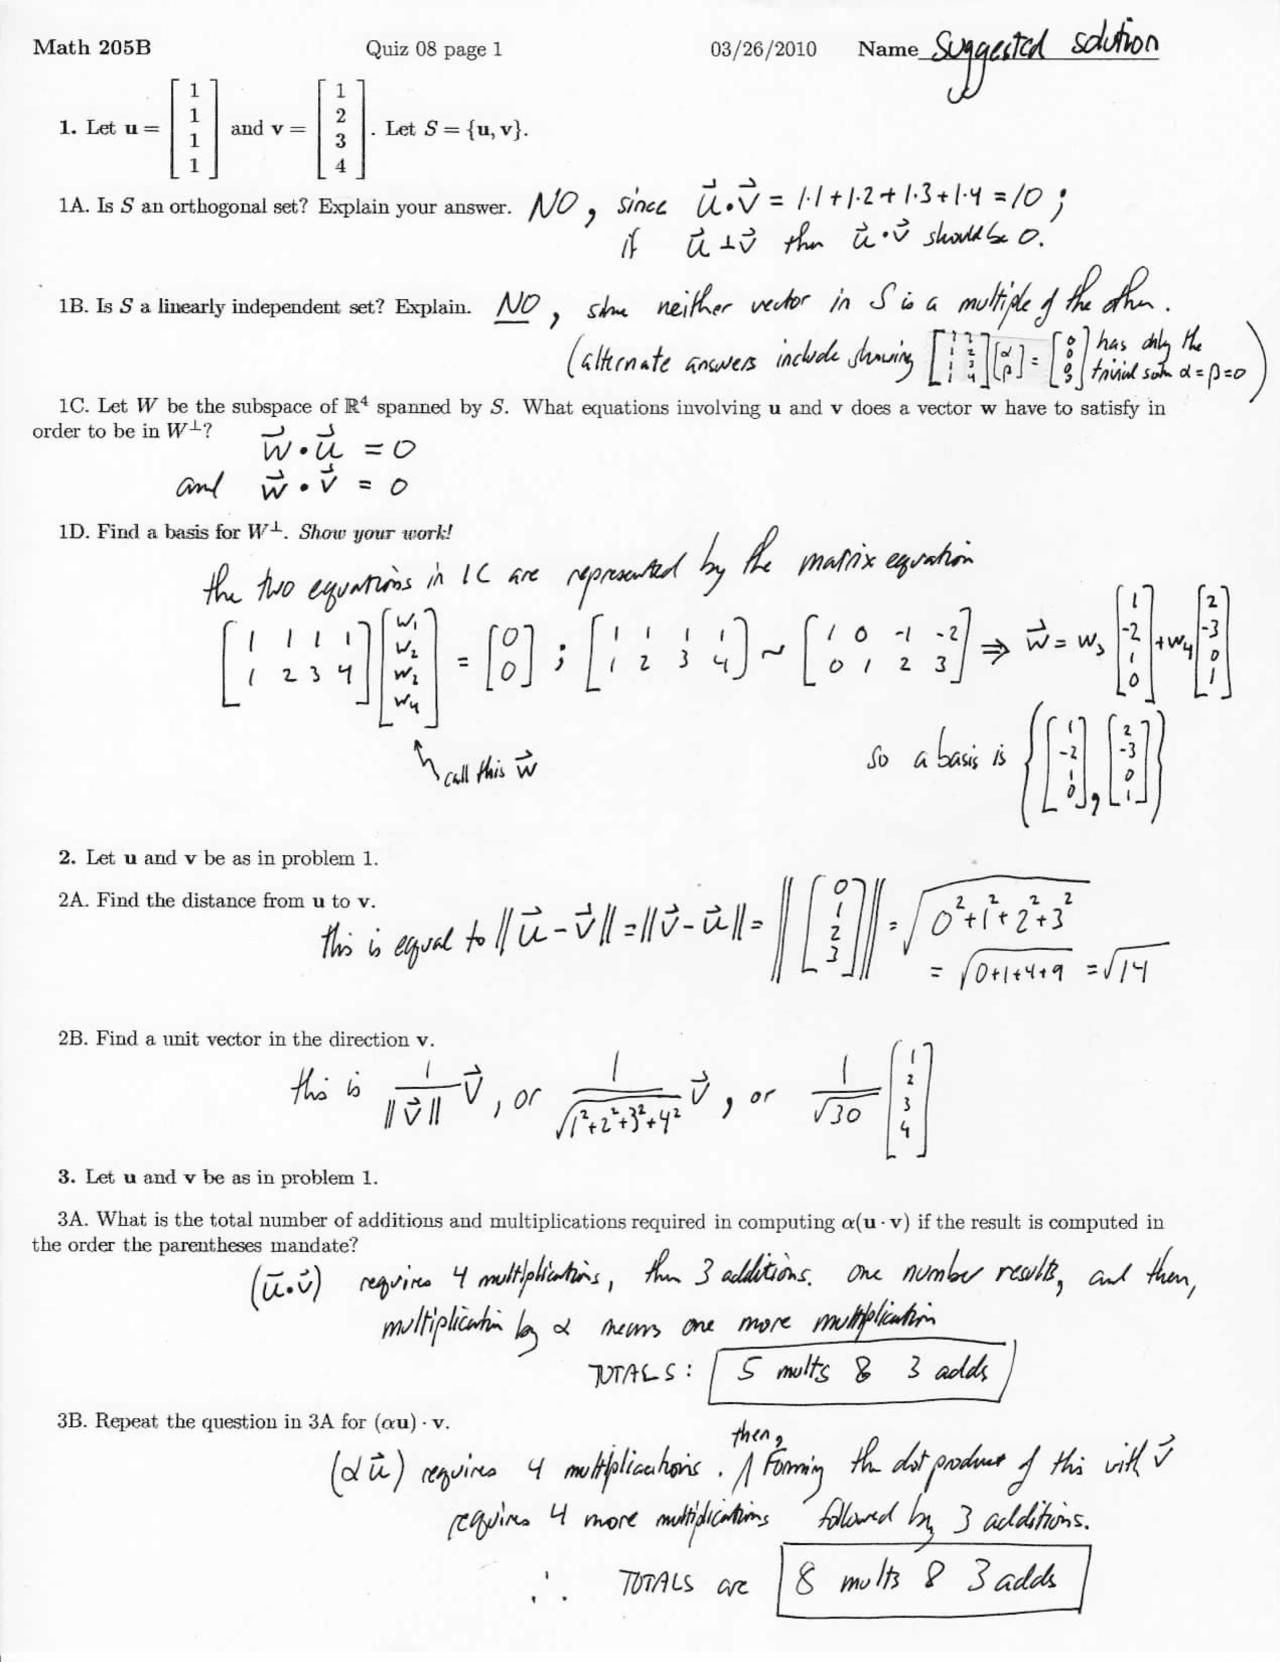 Math 205B Quiz 08 page 1 03/26/2010 Name Suggested solution
1. Let u = [1 1 1 1] and v = [1 2 3 4]. Let S = {u, v}.
1A. Is S an orthogonal set? Explain your answer. NO, since u⃗·v⃗ = 1·1+1·2+1·3+1·4 = 10;
if u⃗ ⊥ v⃗ then u⃗·v⃗ should be 0.
1B. Is S a linearly independent set? Explain. NO, since neither vector in S is a multiple of the other.
(alternate answers include showing [1 1; 1 2; 1 3; 1 4][α β] = [0 0 0 0] has only the
trivial soln α=β=0)
1C. Let W be the subspace of ℝ⁴ spanned by S. What equations involving u and v does a vector w have to satisfy in
order to be in W⊥?
w⃗·u⃗ = 0
and w⃗·v⃗ = 0
1D. Find a basis for W⊥. Show your work!
the two equations in 1C are represented by the matrix equation
[1 1 1 1; 1 2 3 4][w₁ w₂ w₂ w₄] = [0 0]; [1 1 1 1; 1 2 3 4] ~ [1 0 -1 -2; 0 1 2 3] ⇒ w⃗ = w₃[1 -2 1 0] + w₄[2 -3 0 1]
call this w⃗
so a basis is {[1 -2 1 0], [2 -3 0 1]}
2. Let u and v be as in problem 1.
2A. Find the distance from u to v.
this is equal to ‖u⃗-v⃗‖ = ‖v⃗-u⃗‖ = ‖[0 1 2 3]‖ = √(0²+1²+2²+3²)
= √(0+1+4+9) = √14
2B. Find a unit vector in the direction v.
this is 1/‖v⃗‖ v⃗, or 1/√(1²+2²+3²+4²) v⃗, or 1/√30 [1 2 3 4]
3. Let u and v be as in problem 1.
3A. What is the total number of additions and multiplications required in computing α(u · v) if the result is computed in
the order the parentheses mandate?
(u⃗·v⃗) requires 4 multiplications, then 3 additions. one number results, and then,
multiplication by α means one more multiplication
TOTALS: 5 mults & 3 adds
3B. Repeat the question in 3A for (αu) · v.
(αu⃗) requires 4 multiplications. then, Forming the dot product of this with v⃗
requires 4 more multiplications followed by 3 additions.
∴ TOTALS are 8 mults & 3 adds